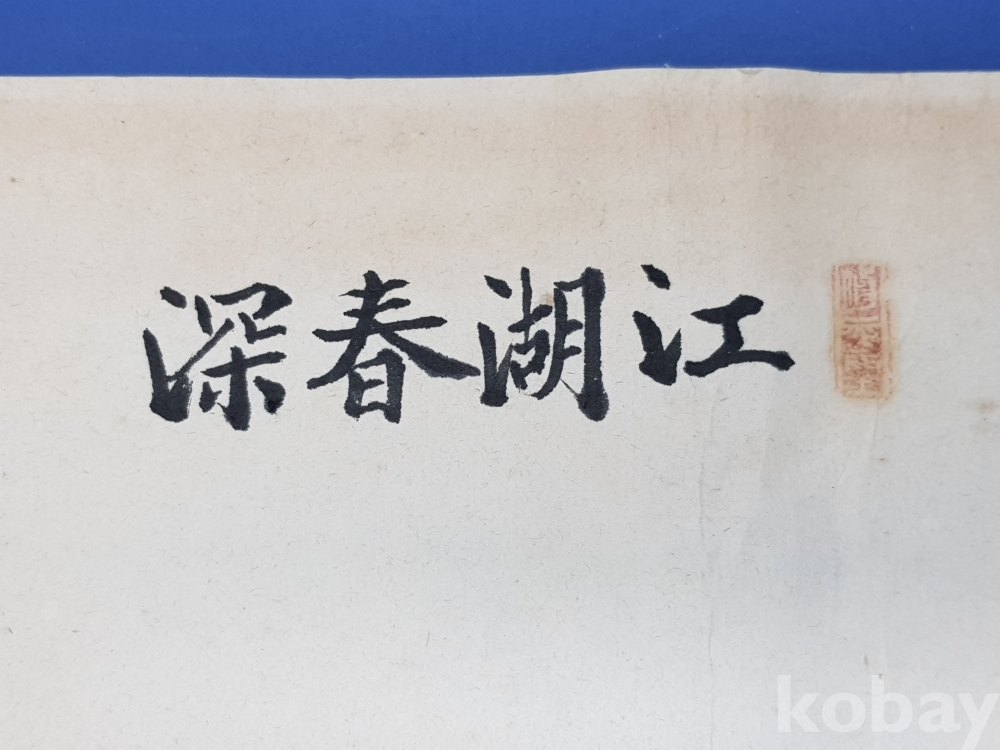 江湖春深
kobay